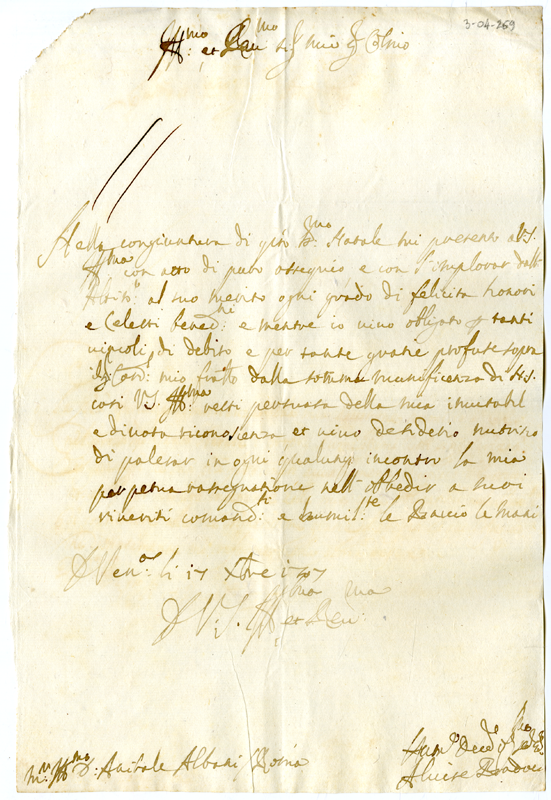 3-04-269
Ill:mo et Reu:mo Sig mio Sig Colmo
Nella congiuntura di q'sto S:mo Natale mi presento a VS.
Ill:ma con atto di puro ossequio e con l'implorar dall
al suo merito ogni grado di felicità honori
e Celesti bened:ni e mentre io uiuo obligato p tanti
uincoli di debito e per tante gratie profuse sopra
il Card: mio frãtto dalla somma munificenza di
così VS. Ill:ma resti persuasa della mia
e diuota riconoscenza et uiuo desiderio
di palesar in ogni qualunq incontro la mia
perpetua rassegnatione nell obedir a suoi
riueriti comand:ti e humil:te le Baccio le Mani
D VS. Ill:ma et Reu:ma
M.r Ill:mo D: Anibale Albani Roma
Aluise